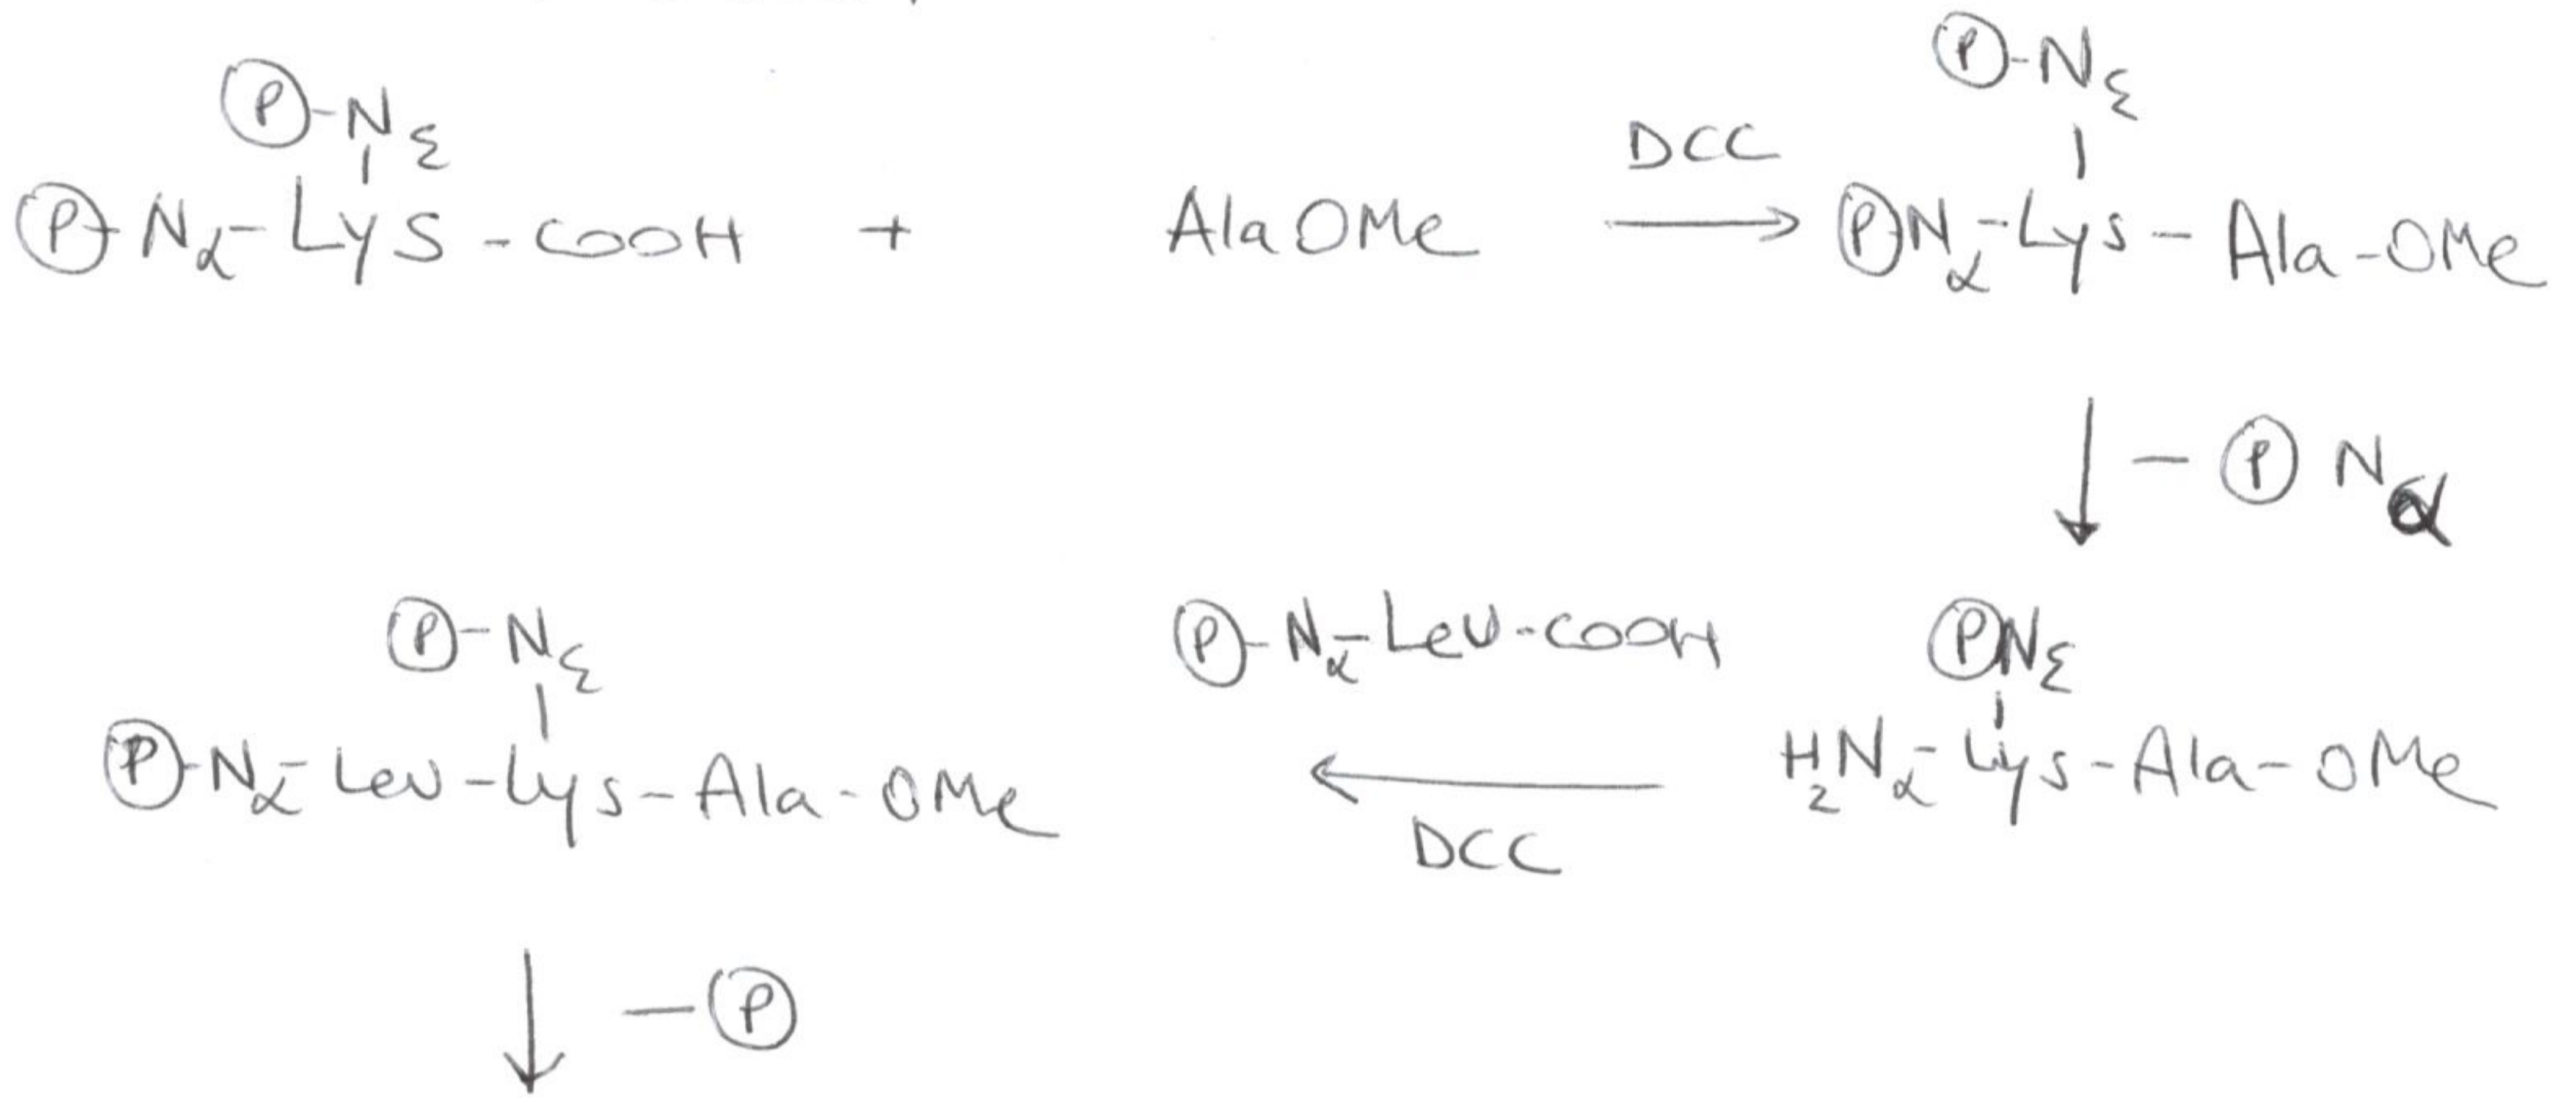 Ⓟ-Nε
Ⓟ-Nα-Lys-COOH + AlaOMe
DCC
Ⓟ-Nε
ⓅNα-Lys-Ala-OMe
-Ⓟ Nα
ⓅNε
H2Nα-Lys-Ala-OMe
Ⓟ-Nα-Leu-COOH
DCC
Ⓟ-Nε
Ⓟ-Nα-Leu-Lys-Ala-OMe
-Ⓟ